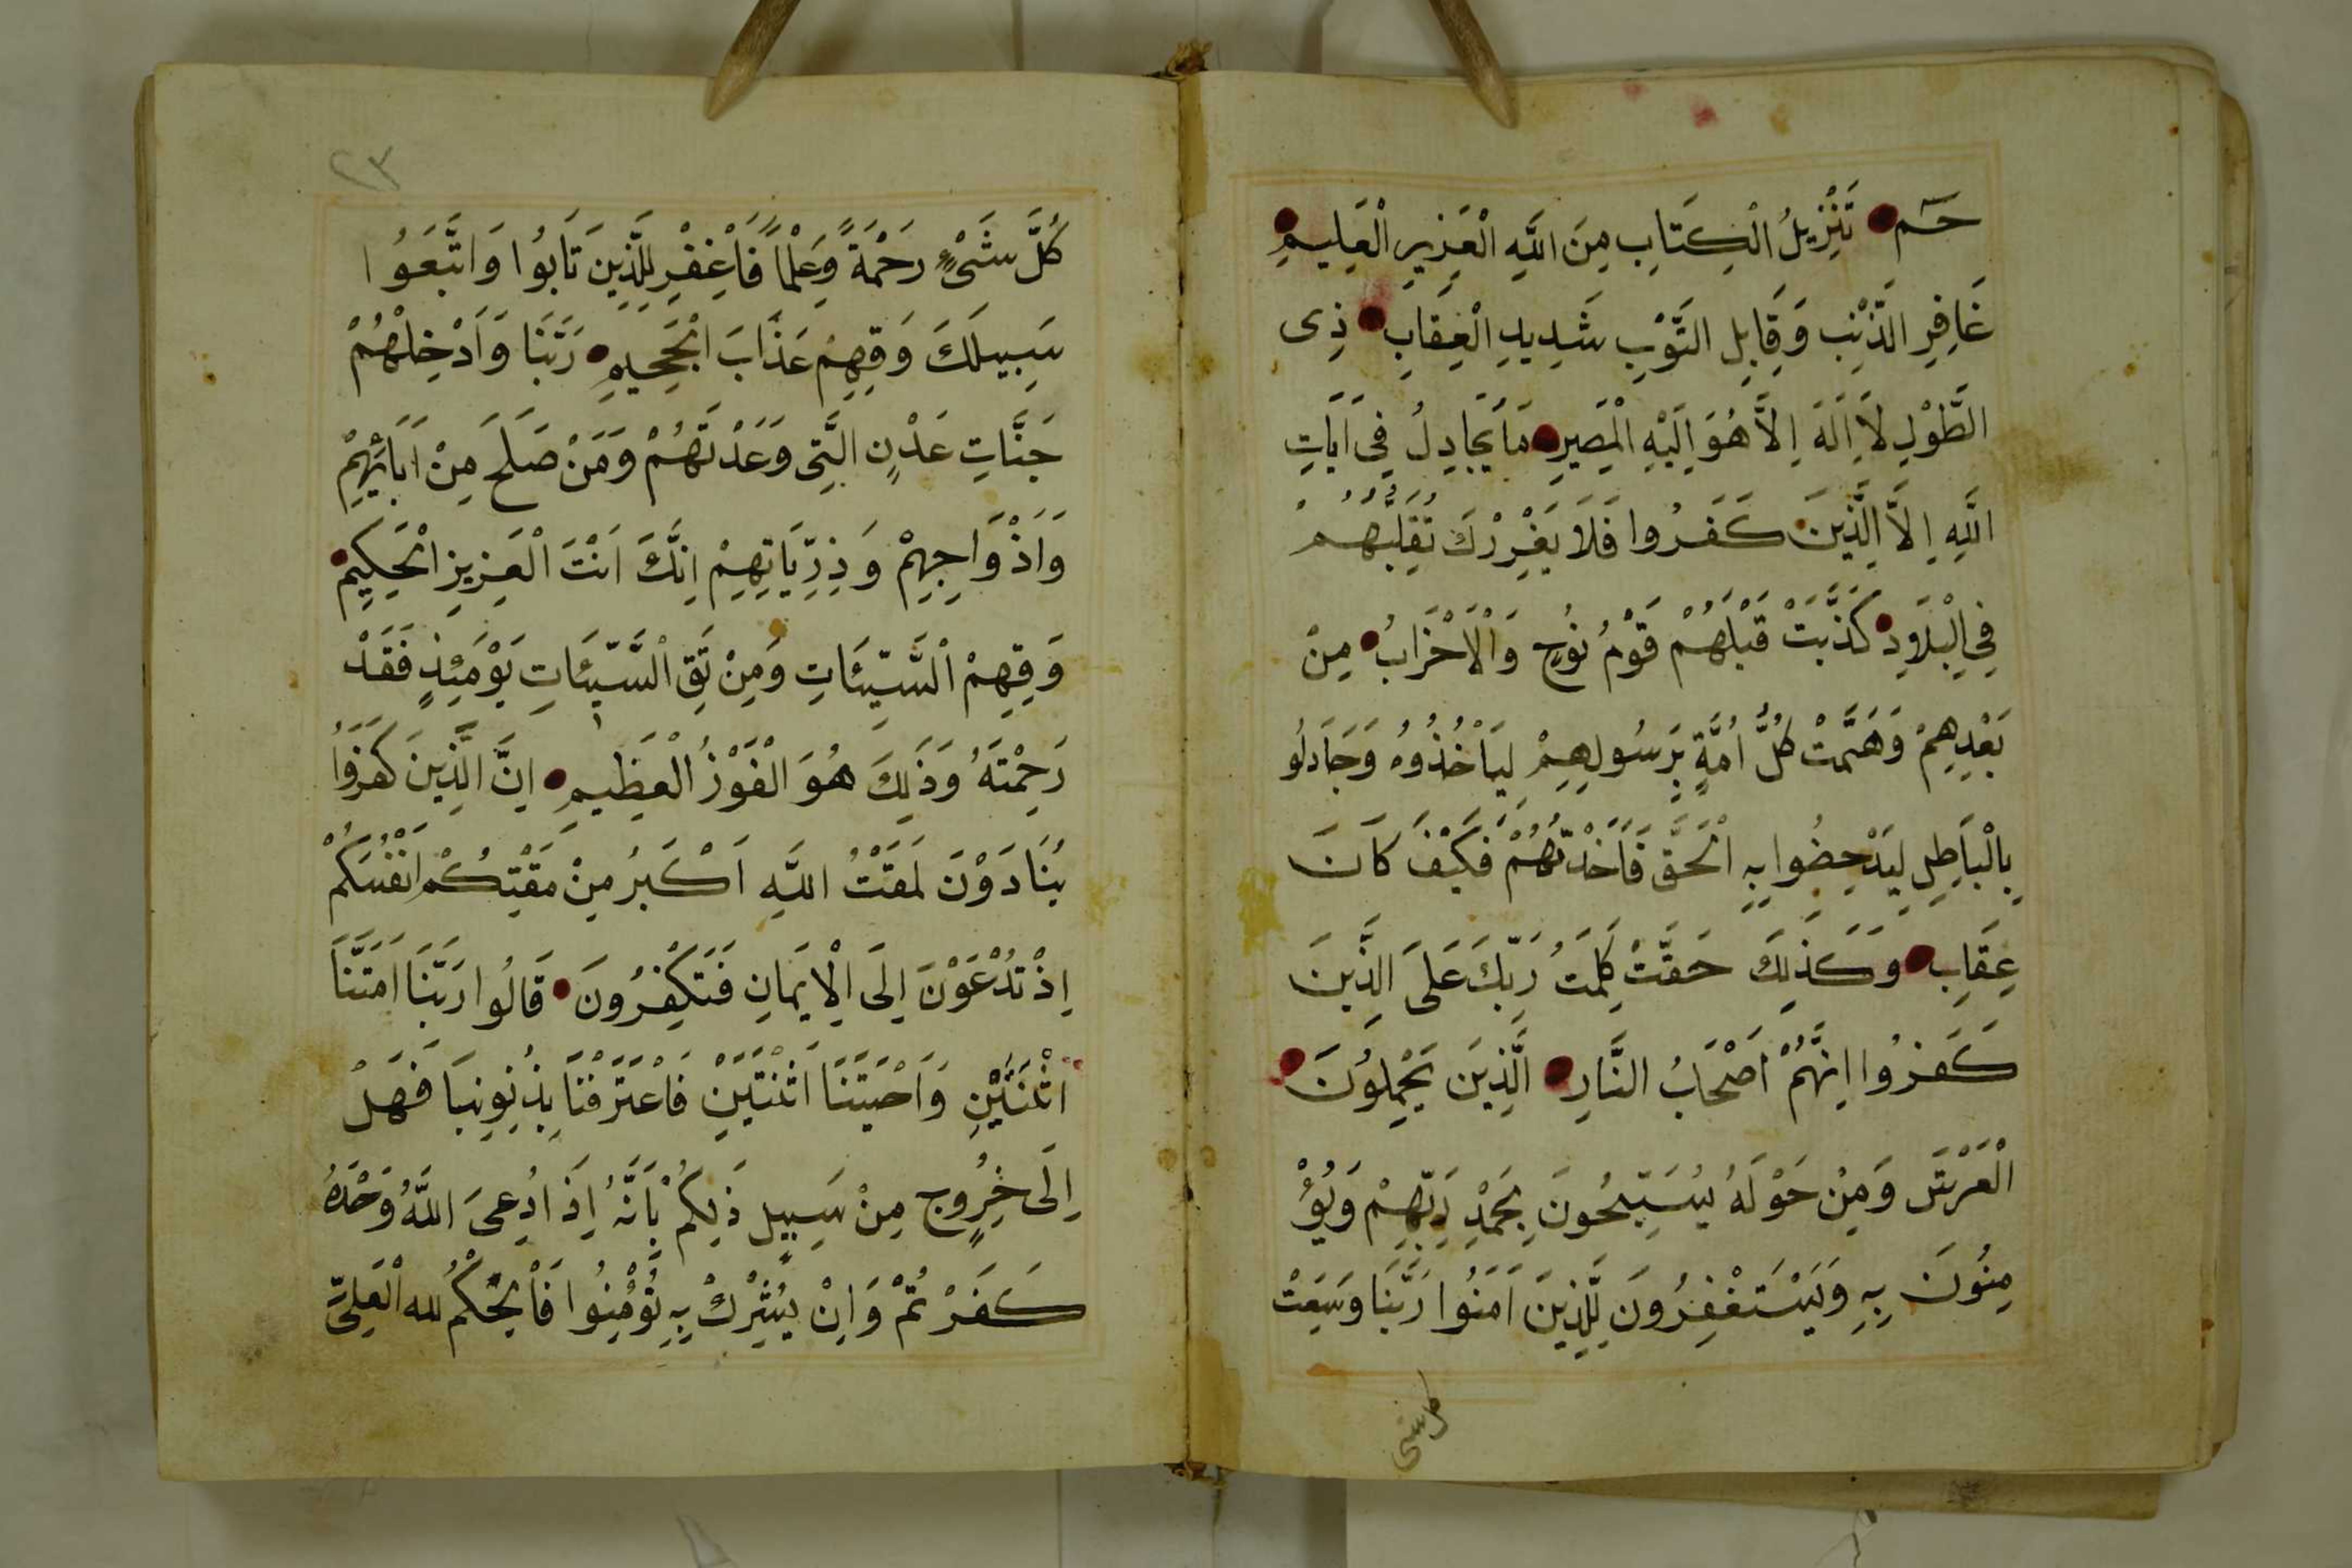 حٰم تَنْزِيلُ الْكِتَابِ مِنَ اللّٰهِ الْعَزِيزِ الْعَلِيمِ
غَافِرِ الذَّنْبِ وَقَابِلِ التَّوْبِ شَدِيدِ الْعِقَابِ ذِى
الطَّوْلِ لَا اِلَهَ اِلَّا هُوَ اِلَيْهِ الْمَصِيرِ مَا يُجَادِلُ فِى آيَاتِ
اللّٰهِ اِلَّا الَّذِينَ كَفَرُوا فَلَا يَغْرُرْكَ تَقَلُّبُهُمْ
فِى الْبِلَادِ كَذَّبَتْ قَبْلَهُمْ قَوْمُ نُوحٍ وَالْاَحْزَابُ مِنْ
بَعْدِهِمْ وَهَمَّتْ كُلُّ اُمَّةٍ بِرَسُولِهِمْ لِيَأْخُذُوهُ وَجَادَلُو
بِالْبَاطِلِ لِيُدْحِضُوا بِهِ الْحَقَّ فَاَخَذْتُهُمْ فَكَيْفَ كَانَ
عِقَابِ وَكَذٰلِكَ حَقَّتْ كَلِمَتُ رَبِّكَ عَلَى الَّذِينَ
كَفَرُوا اِنَّهُمْ اَصْحَابُ النَّارِ الَّذِينَ يَحْمِلُونَ
الْعَرْشَ وَمِنْ حَوْلَهُ يُسَبِّحُونَ بِحَمْدِ رَبِّهِمْ وَيُؤْ
مِنُونَ بِهِ وَيَسْتَغْفِرُونَ لِلَّذِينَ آمَنُوا رَبَّنَا وَسِعَتْ
كل شى
٢٣
كُلَّ شَىْءٍ رَحْمَةً وَعِلْمًا فَاغْفِرْ لِلَّذِينَ تَابُوا وَاتَّبَعُوا
سَبِيلَكَ وَقِهِمْ عَذَابَ الْجَحِيمِ رَبَّنَا وَاَدْخِلْهُمْ
جَنَّاتِ عَدْنٍ الَّتِى وَعَدْتَهُمْ وَمَنْ صَلَحَ مِنْ آبَائِهِمْ
وَاَزْوَاجِهِمْ وَذُرِّيَاتِهِمْ اِنَّكَ اَنْتَ الْعَزِيزِ الْحَكِيمِ
وَقِهِمْ السَّيِّئَاتِ وَمِنْ تَقِ السَّيِّئَاتِ يَوْمَئِذٍ فَقَدْ
رَحِمْتَهُ وَذٰلِكَ هُوَ الْفَوْزُ الْعَظِيمِ اِنَّ الَّذِينَ كَفَرُوا
يُنَادَوْنَ لَمَقْتُ اللّٰهِ اَكْبَرُ مِنْ مَقْتِكُمْ اَنْفُسَكُمْ
اِذْ تُدْعَوْنَ اِلَى الْاِيمَانِ فَتَكْفُرُونَ قَالُوا رَبَّنَا اَمَتَّنَا
اثْنَتَيْنِ وَاَحْيَتَنَا اثْنَتَيْنِ فَاعْتَرَفْنَا بِذُنُوبِنَا فَهَلْ
اِلَى خُرُوجٍ مِنْ سَبِيلٍ ذٰلِكُمْ بِاَنَّهُ اِذَا دُعِىَ اللّٰهُ وَحْدَهُ
كَفَرْتُمْ وَاِنْ يُشْرِكْ بِهِ تُؤْمِنُوا فَالْحُكْمُ لله الْعَلِىِّ